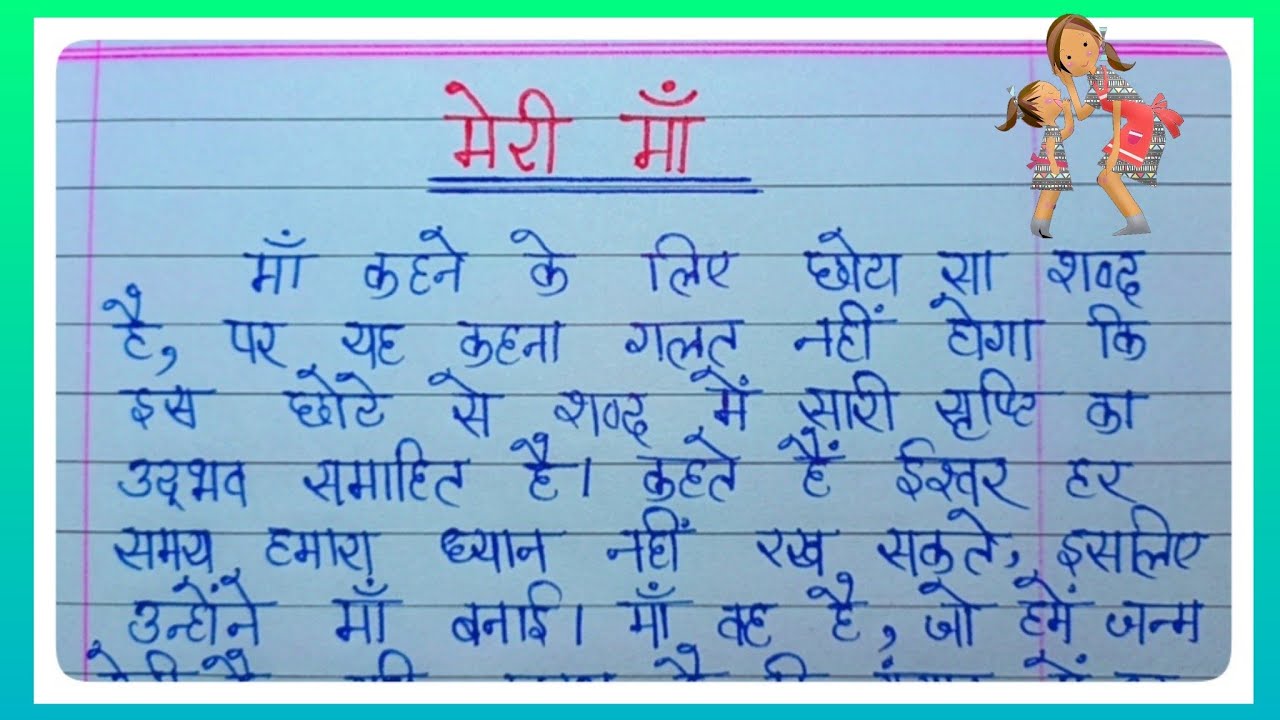 मेरी माँ
माँ कहने के लिए छोटा सा शब्द
है, पर यह कहना गलत नहीं होगा कि
इस छोटे से शब्द में सारी सृष्टि का
उद्भव समाहित है। कहते हैं ईश्वर हर
समय हमारा ध्यान नहीं रख सकते, इसलिए
उन्होंने माँ बनाई। माँ वह है, जो हमें जन्म